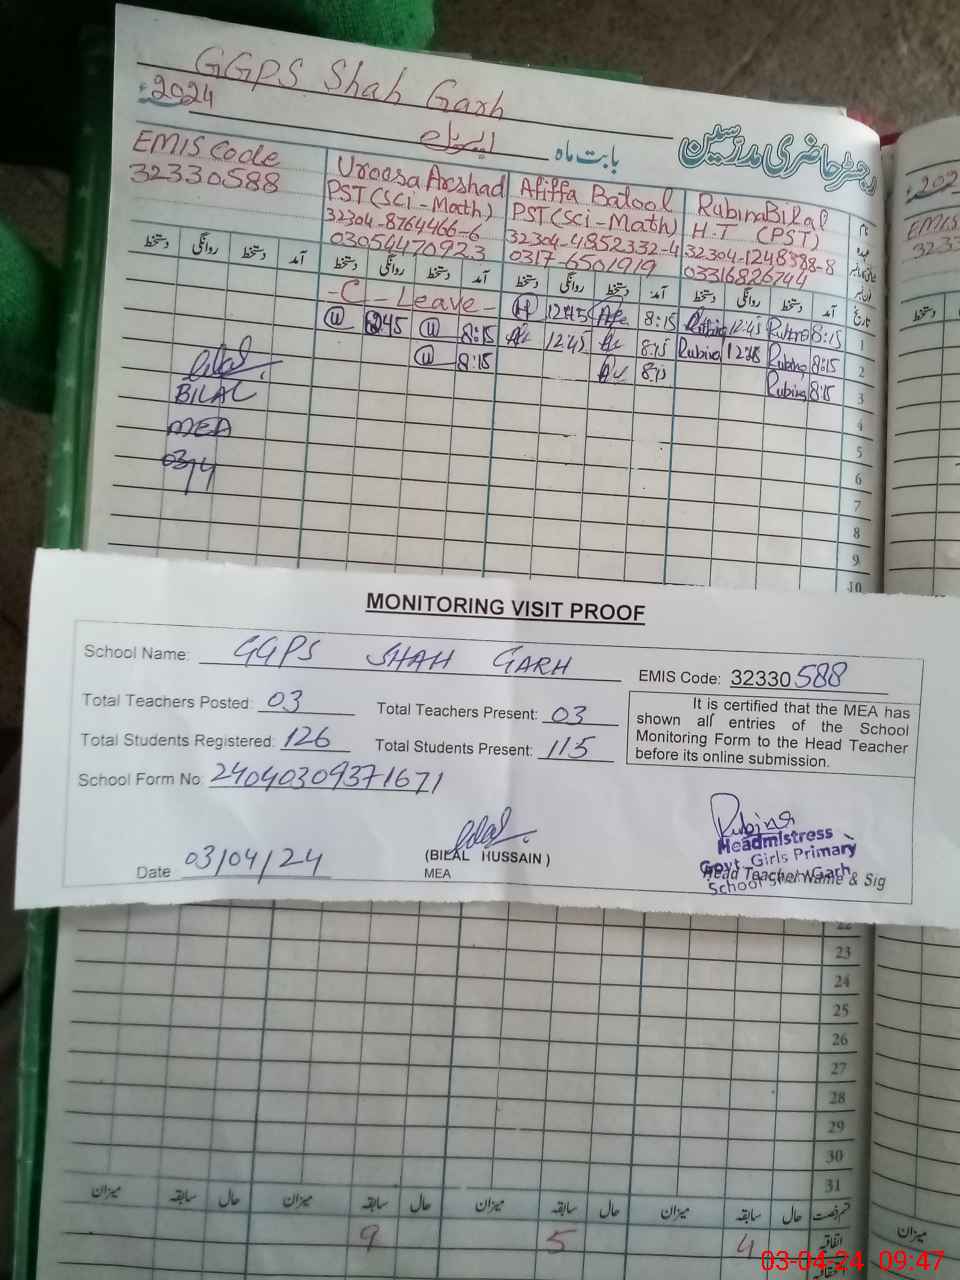 GGPS Shah Garh
2024ء
اپریل
بابت ماہ
رجسٹر حاضری مدرسین
EMIS Code
32330588
Uroosa Arshad
PST (Sci-Math)
32304-8764466-6
03054470923
Afiffa Batool
PST (Sci-Math)
32304-4852332-4
0317-6501919
Rubina Bilal
H.T (PST)
32304-1248388-8
03316826744
نام
عہدہ
دستخط روانگی دستخط آمد دستخط روانگی دستخط آمد دستخط روانگی دستخط آمد دستخط روانگی دستخط آمد تاریخ
-C-Leave- 12:45 8:15 Rubina 12:45 Rubina 8:15 1
245 8:15 1245 8:15 Rubina 1245 Rubina 8:15 2
8:15 8:15 Rubina 8:15 3
BILAL
MEA
03/4
4
5
6
7
8
9
10
MONITORING VISIT PROOF
School Name: GGPS SHAH GARH
EMIS Code: 32330588
Total Teachers Posted: 03
Total Teachers Present: 03
Total Students Registered: 126
Total Students Present: 115
School Form No: 24040309371671
It is certified that the MEA has
shown all entries of the School
Monitoring Form to the Head Teacher
before its online submission.
Date 03/04/24
Bilal
(BILAL HUSSAIN)
MEA
Rubina
Headmistress
Govt. Girls Primary
School Shah Garh
Head Teacher Name & Sig
22
23
24
25
26
27
28
29
30
31
میزان سابقہ حال میزان سابقہ حال میزان سابقہ حال میزان سابقہ حال قسم رخصت
9 5 4 اتفاقیہ
میزان
03-04-24 09:47